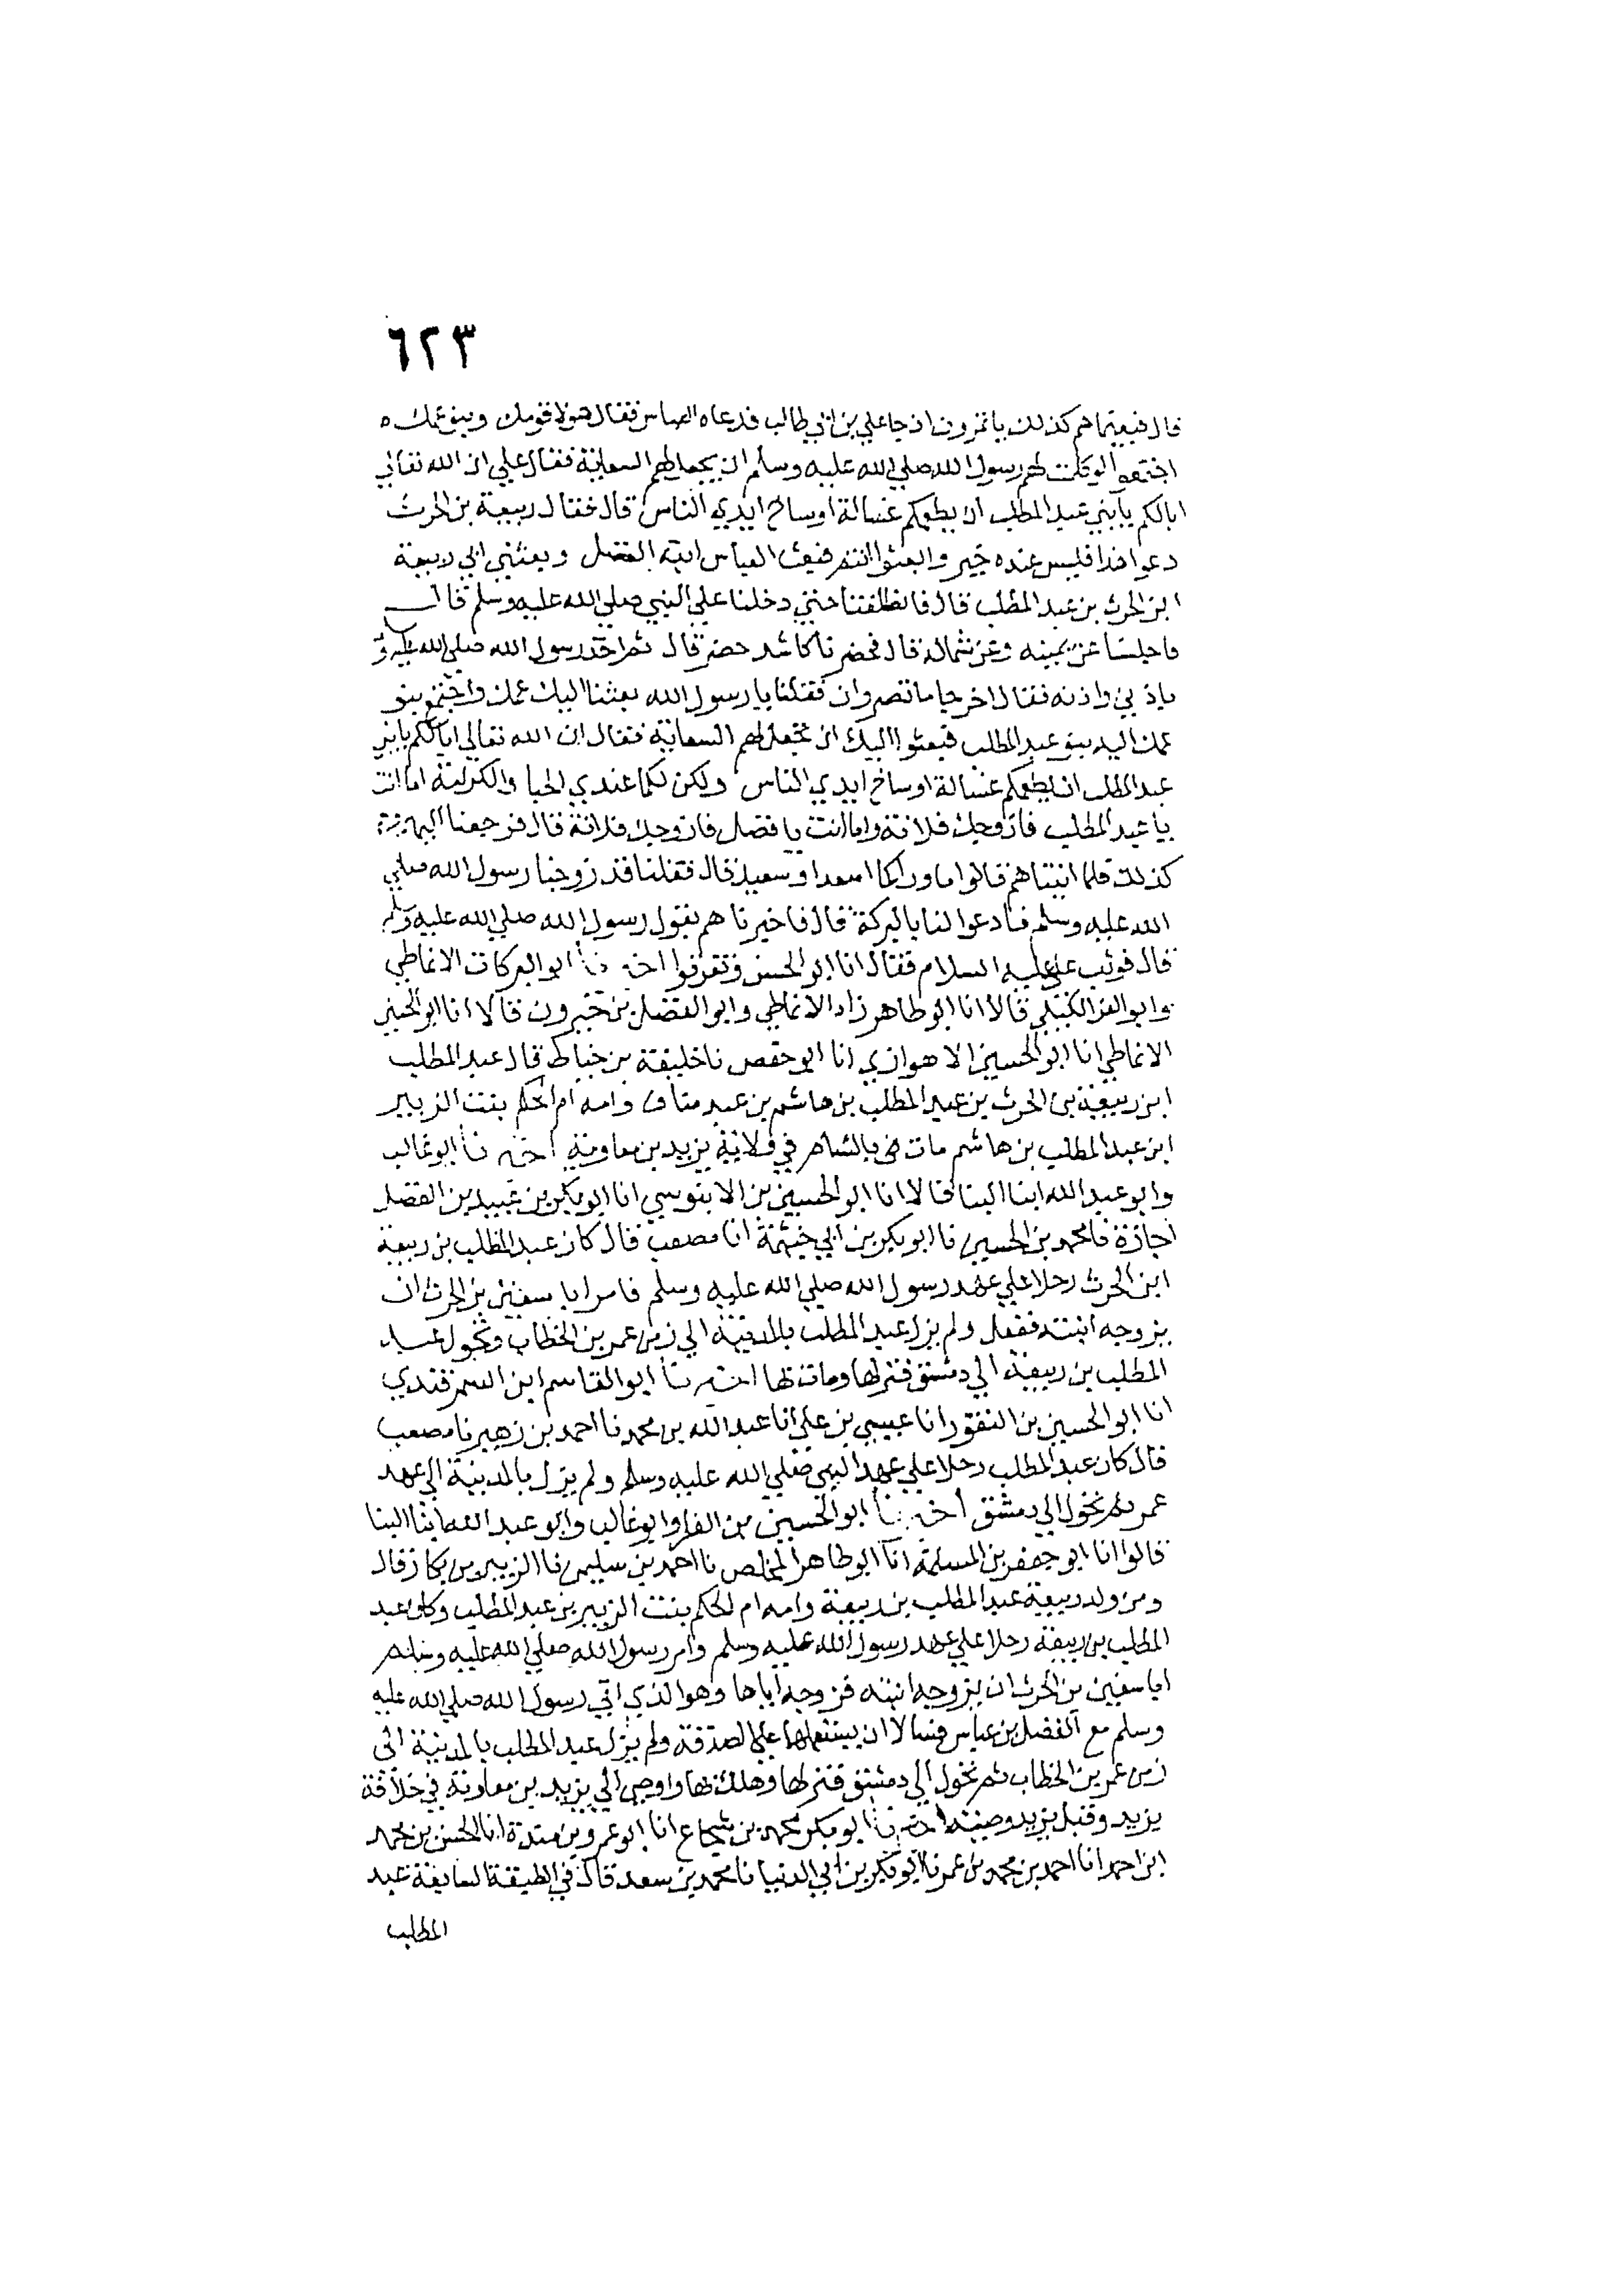 ٦٢٣
قال فبينما هم كذلك يأتمرون اذ جا علي بن ابي طالب فدعاه العباس فقال هولا قومك وبنو عمك
اجتمعوا لو كلمت لهم رسول الله صلي الله عليه وسلم ان يجعل لهم السعاية فقال علي ان الله تعالي
ابا لكم يا بني عبد المطلب ان يطعمكم غسالة اوساخ ايدي الناس قال فقال ربيعة بن الحرث
دعوا هذا فليس عنده خير وابعثوا انتم فبعث العباس ابنه الفضل وبعثني ابي ربيعة
ابن الحرث بن عبد المطلب قال فانطلقنا حتي دخلنا علي النبي صلي الله عليه وسلم قال
فاجلسنا عن يمينه وعن شماله قال فحضرنا كاشد حضر قال ثم اخذ رسول الله صلي الله عليه و
باذني واذنه فقال اخرجا ما تصروان فقلنا يا رسول الله بعثنا اليك عمك واجتمع بنو
عمك اليه بنو عبد المطلب فبعثوا اليك ان تجعل لهم السعاية فقال ان الله تعالي ابا لكم يا بني
عبد المطلب ان يطعمكم غسالة اوساخ ايدي الناس ولكن لكما عندي الحبا والكرامة اما انت
يا عبد المطلب فازوجك فلانة واما انت يا فضل فازوجك فلانة قال فرجعنا اليهم
كذلك فلما اتيناهم قالوا ما وراكما اسعد او سعيد قال فقلنا قد زوجنا رسول الله صلي
الله عليه وسلم فادعوا لنا بالبركة قال فاخبرناهم بقول رسول الله صلي الله عليه وسلم
قال فوثب علي عليه السلام فقال انا ابو الحسن وتفرقوا اخبرنا ابو البركات الانماطي
وابو العز الكيلي قالا انا ابو طاهر زاد الانماطي وابو الفضل بن خيرون قالا انا ابو الحسين
الانماطي انا ابو الحسين الاهوازي انا ابو حفص نا خليفة بن خياط قال عبد المطلب
ابن ربيعة بن الحرث بن عبد المطلب بن هاشم بن عبد مناف وامه ام الحكم بنت الزبير
ابن عبد المطلب بن هاشم مات بالشام في ولاية يزيد بن معاوية اخبرنا ابو غالب
وابو عبد الله ابنا البنا قالا انا ابو الحسين بن الابنوسي انا ابو بكر بن عبيد بن الفضل
اجازة نا محمد بن الحسين نا ابو بكر بن ابي خيثمة انا مصعب قال كان عبد المطلب بن ربيعة
ابن الحرث رجلا علي عهد رسول الله صلي الله عليه وسلم فامر ابا سفين بن الحرث ان
يزوجه ابنته ففعل ولم يزل عبد المطلب بالمدينة الي زمن عمر بن الخطاب وتحول عبد
المطلب بن ربيعة الي دمشق فنزلها ومات بها اخبرنا ابو القاسم ابن السمرقندي
انا ابو الحسين بن النقور انا عيسي بن علي انا عبد الله بن محمد نا احمد بن زهير نا مصعب
قال كان عبد المطلب رجلا علي عهد النبي صلي الله عليه وسلم ولم يزل بالمدينة الي عهد
عمر ثم تحول الي دمشق اخبرنا ابو الحسين بن الفرا وابو غالب وابو عبد الله ابنا البنا
قالوا انا ابو جعفر بن المسلمة انا ابو طاهر المخلص نا احمد بن سليمن نا الزبير بن بكار قال
ومن ولد ربيعة عبد المطلب بن ربيعة وامه ام الحكم بنت الزبير بن عبد المطلب وكان عبد
المطلب بن ربيعة رجلا علي عهد رسول الله عليه وسلم وامر رسول الله صلي الله عليه وسلم
ابا سفين بن الحرث ان يزوجه ابنته فزوجه اياها وهو الذي اتي رسول الله صلي الله عليه
وسلم مع الفضل بن عباس فسالا ان يستعملهما علي الصدقة ولم يزل عبد المطلب بالمدينة الي
زمن عمر بن الخطاب ثم تحول الي دمشق فنزلها وهلك بها واوصي الي يزيد بن معاوية في خلافة
يزيد وقبل يزيد وصيته اخبرنا ابو بكر محمد بن شجاع انا ابو عمرو بن مندة انا الحسن بن محمد
ابن احمد انا احمد بن محمد بن عمر نا ابو بكر بن ابي الدنيا نا محمد بن سعد قال في الطبقة الرابعة عبد
المطلب